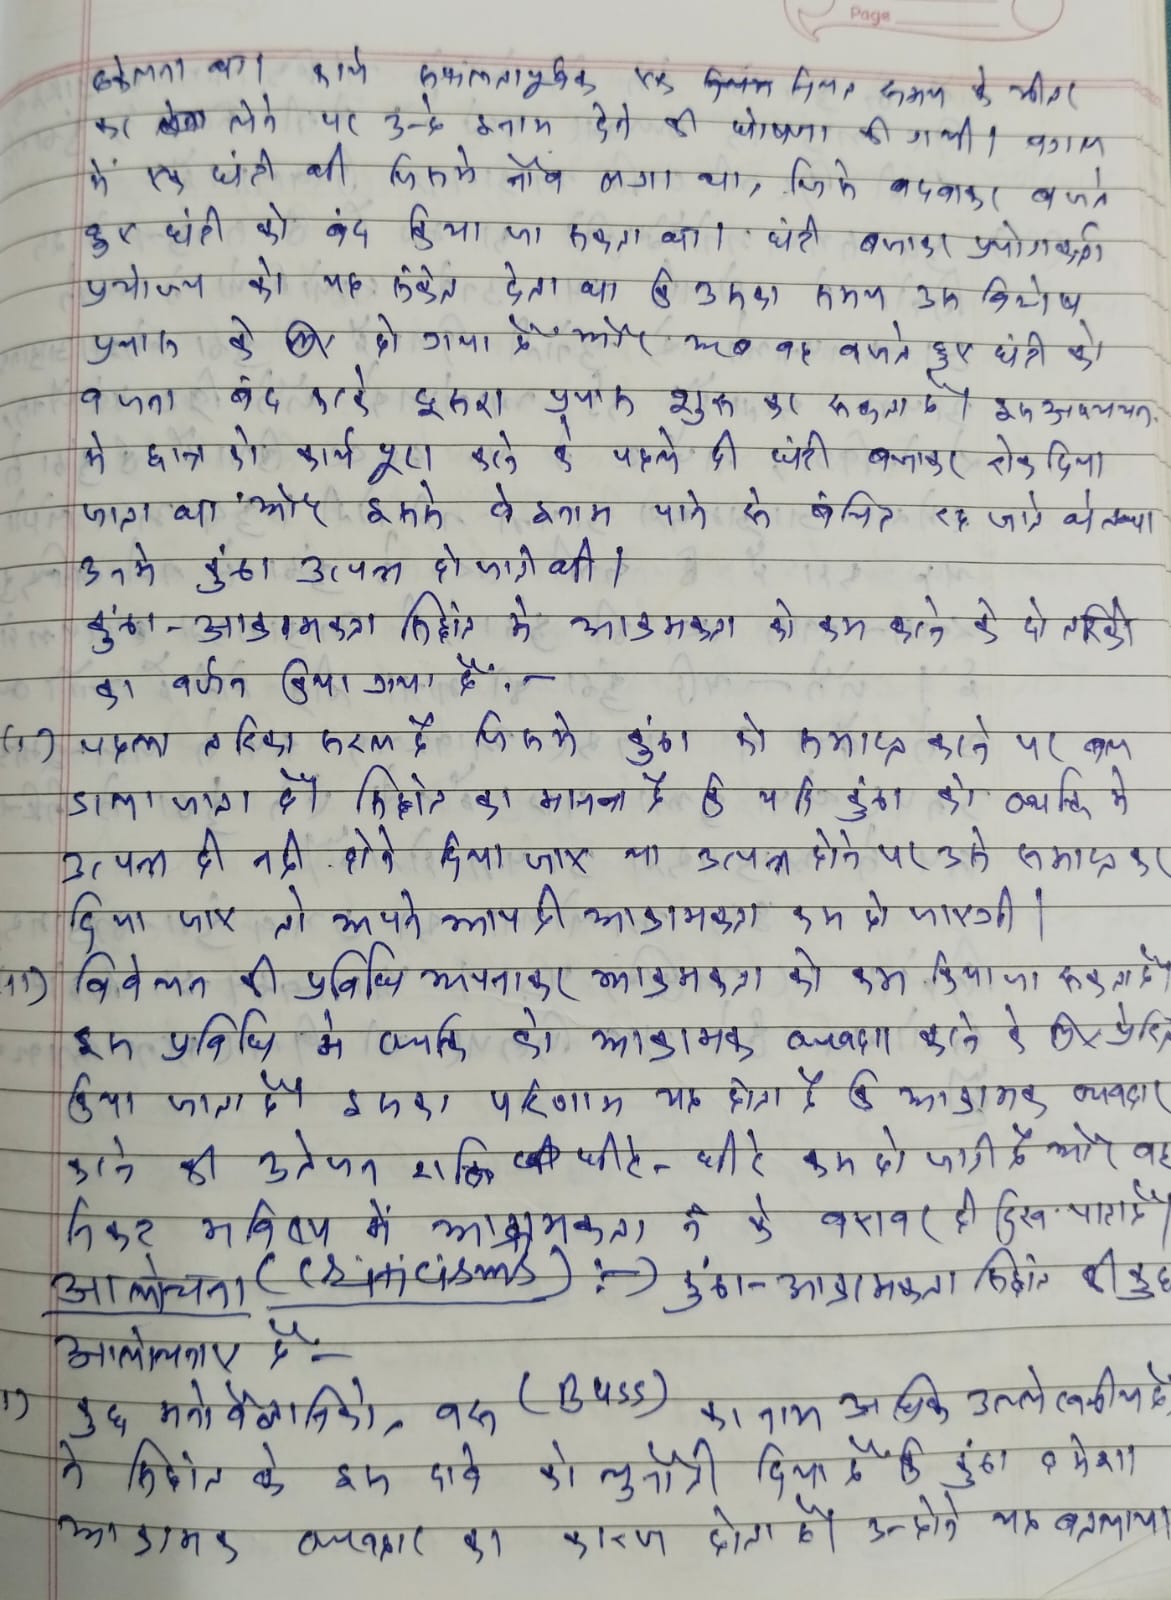 Page
था। कार्य सफलतापूर्वक एक नियत समय के भीतर
कर लेने पर उन्हे इनाम देने की घोषणा की गयी। बगल
में एक घंटी थी जिसमे लगा था, जिसे दबाकर बजते
हुए घंटी को बंद किया जा सकता था। घंटी बजाकर प्रयोगकर्ता
प्रयोज्य को यह संकेत देता था कि उसका समय उस विशेष
प्रयास के लिए हो गया है और अब वह बजते हुए घंटी को
बजना बंद करके दूसरा प्रयास शुरू कर सकता है। इस अध्ययन
मे छात्र को कार्य पूरा करने के पहले ही घंटी बजाकर रोक दिया
जाता था और इससे वे इनाम पाने से बंचित रह जाते थे तथा
उनमे कुंठा उत्पन्न हो जाती थी।
कुंठा-आक्रामकता सिद्धांत मे आक्रमकता को कम करने के दो तरिको
का वर्णन किया गया है:-
(i) पहला तरिका सरल है जिसमे कुंठा को समाप्त करने पर बल
डाला जाता है। सिद्धांत का मानना है कि यदि कुंठा को व्यक्ति मे
उत्पन्न ही नही होने दिया जाए या उत्पन्न होने पर उसे समाप्त कर
दिया जाए तो अपने आप ही आक्रामकता कम हो जाएगी।
(ii) विवेचन की प्रविधि अपनाकर आक्रमकता को कम किया जा सकता है।
इस प्रविधि मे व्यक्ति को आक्रामक व्यवहार करने के लिए प्रेरित
किया जाता है। इसका परिणाम यह होता है कि आक्रामक व्यवहार
करने की उत्तेजन शक्ति धीरे-धीरे कम हो जाती है और वह
निकट भविष्य में आक्रामकता न के बराबर ही दिख पाता है।
आलोचना (Criticisms) :-) कुंठा-आक्रामकता सिद्धांत की कुछ
आलोचनाए है:-
i) कुछ मनोवैज्ञानिको, बस (Buss) का नाम अधिक उल्लेखनीय है
ने सिद्धांत के इस दावे को चुनौती दिया है कि कुंठा हमेशा
आक्रामक व्यवहार का कारण होता है। उन्होने यह बतलाया